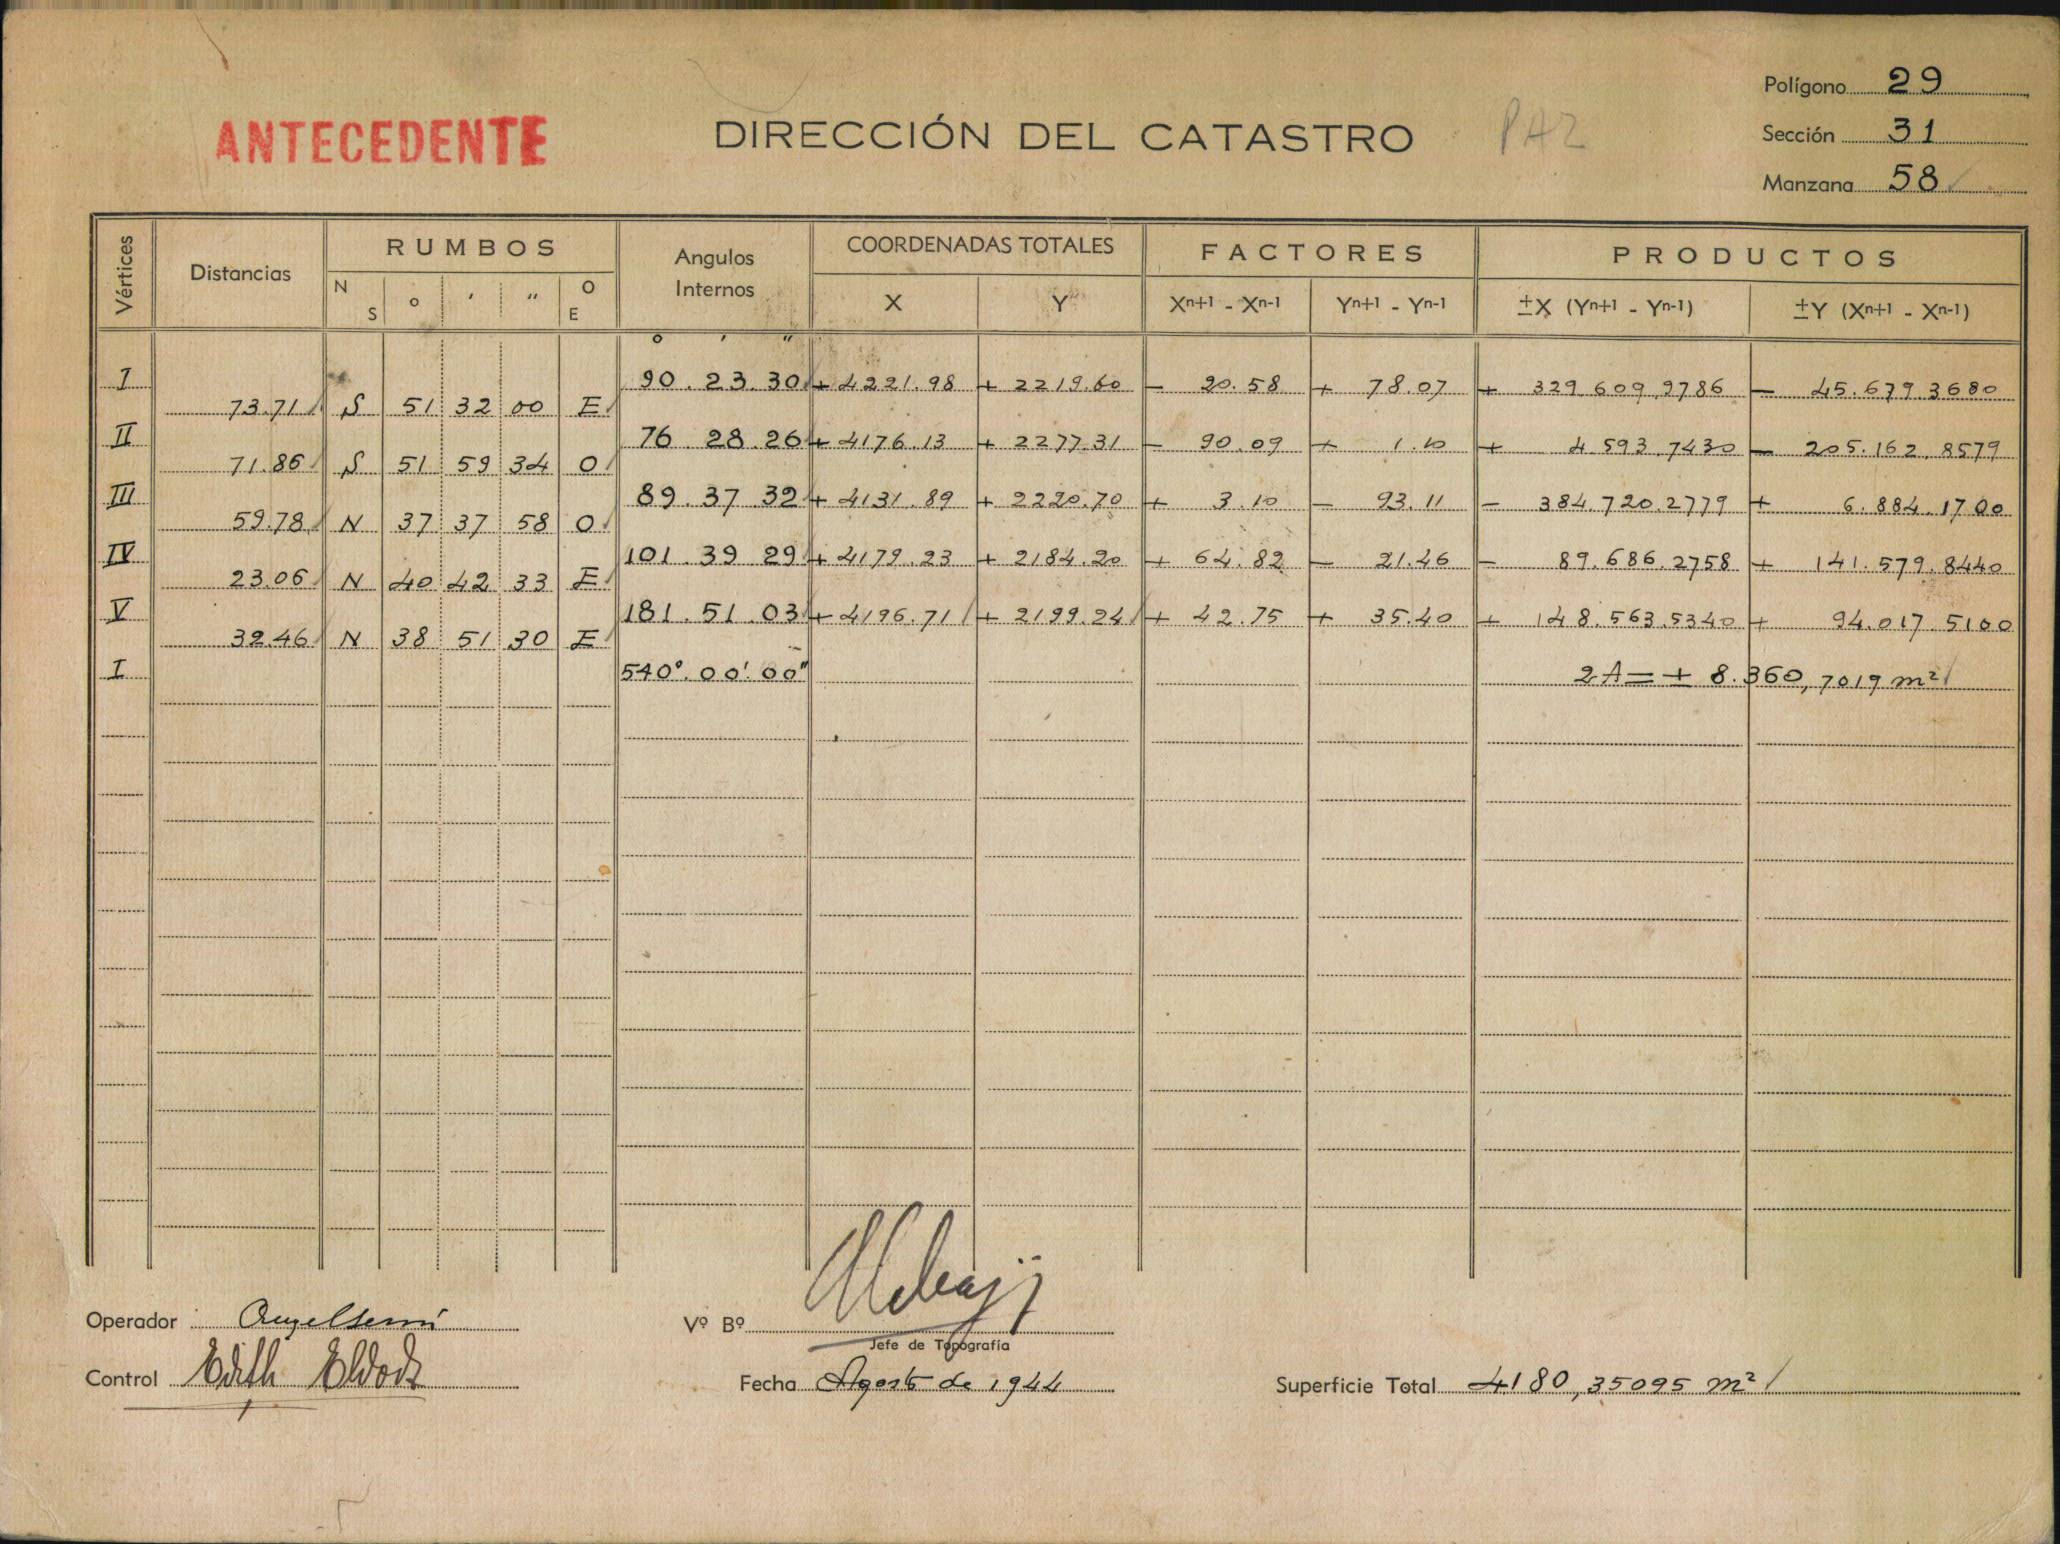 Polígono 29
ANTECEDENTE DIRECCIÓN DEL CATASTRO PAZ
Sección 31
Manzana 58
Vértices Distancias RUMBOS Angulos Internos COORDENADAS TOTALES FACTORES PRODUCTOS
N S ° ' " O E X Y Xn+1 - Xn-1 Yn+1 - Yn-1 ±X (Yn+1 - Yn-1) ±Y (Xn+1 - Xn-1)
° ' "
I 90.23.30 + 4221.98 + 2219.60 - 20.58 + 78.07 + 329.609,9786 - 45.679.3680
73.71 S 51 32 00 E
II 76 28.26 + 4176.13 + 2277.31 - 90.09 + 1.10 + 4.593.7430 - 205.162.8579
71.86 S 51 59 34 O
III 89.37.32 + 4131.89 + 2220.70 + 3.10 - 93.11 - 384.720.2779 + 6.884.1700
59.78 N 37 37 58 O
IV 101.39 29 + 4179.23 + 2184.20 + 64.82 - 21.46 - 89.686.2758 + 141.579.8440
23.06 N 40 42 33 E
V 181.51.03 + 4196.71 + 2199.24 + 42.75 + 35.40 + 148.563.5340 + 94.017 5100
32.46 N 38 51 30 E
I 540°.00'.00" 2A = + 8.360,7019 m²
Operador
Vº Bº
Jefe de Topografía
Control Edith
Fecha Agosto de 1944
Superficie Total 4180,35095 m²